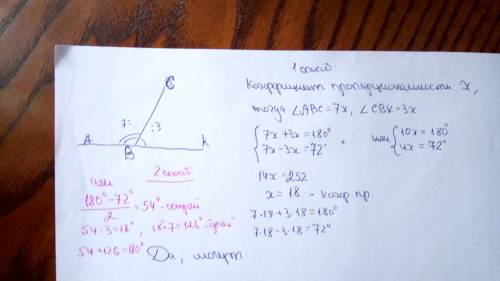 1 способ:
Коэффициент пропорциональности x,
тогда ∠ABC=7x, ∠CBK=3x
{7x+3x=180°
7x-3x=72° + или {10x=180°
4x=72°
14x=252
x=18 - коэф. пр.
7·18+3·18=180°
7·18-3·18=72°
C
7: :3
A B K
или 2 способ
180°-72°
2 =54°-острый
54:3=18°, 18°·7=126°-тупой
54+126=180°
Да,